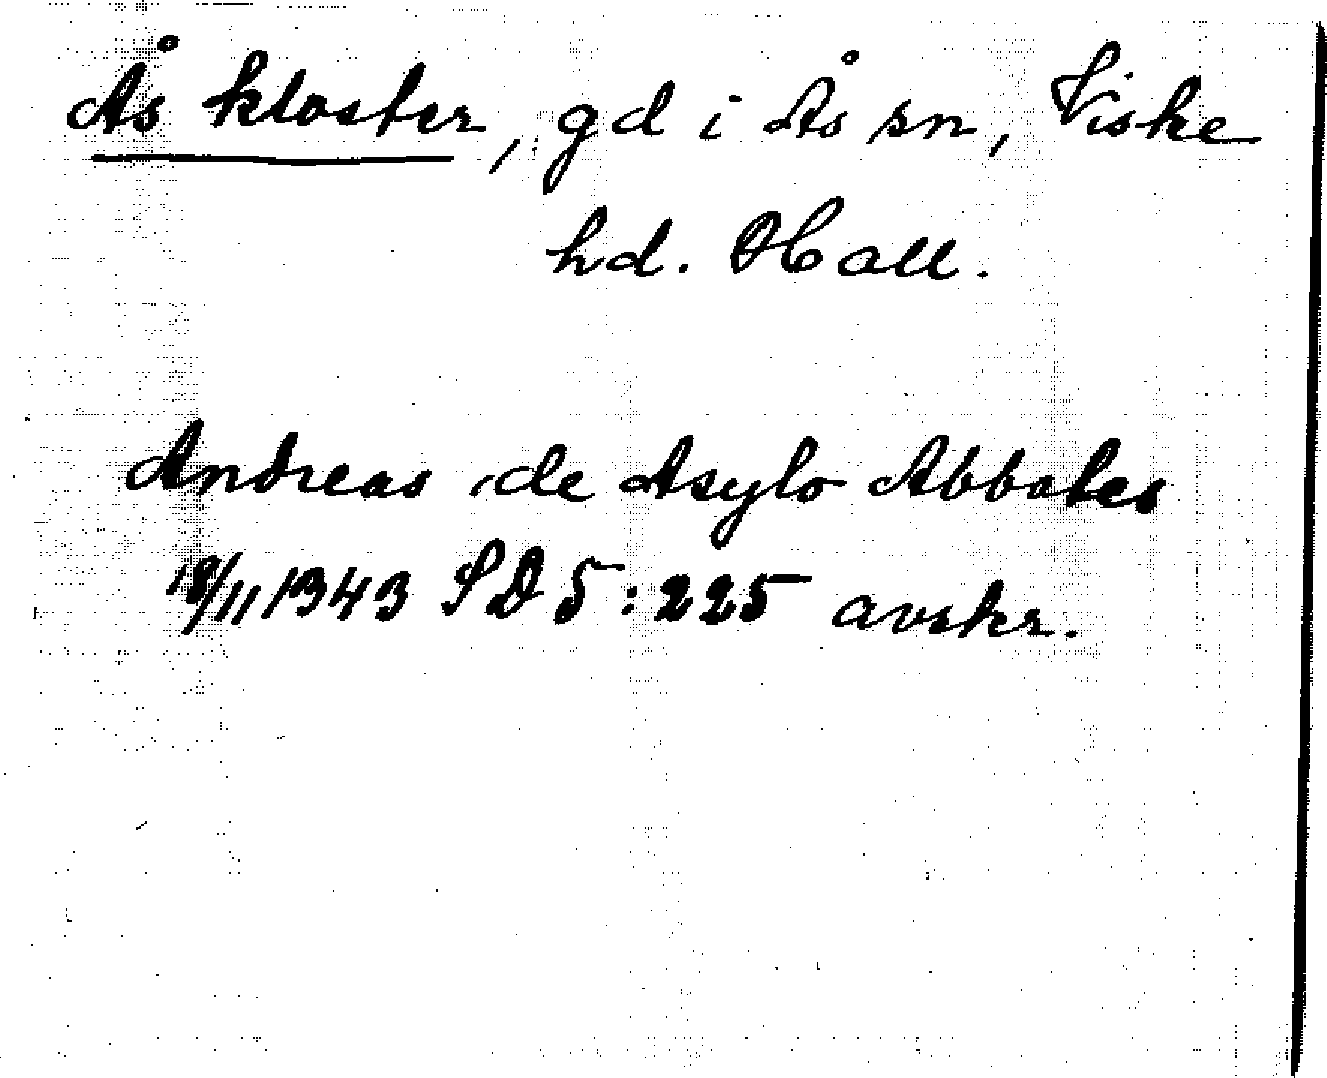 Ås kloster, gd i Ås sn, Viske
hd. Hall.
Andreas de Asylo Abbates
18/11 1343 SD 5:225 avskr.